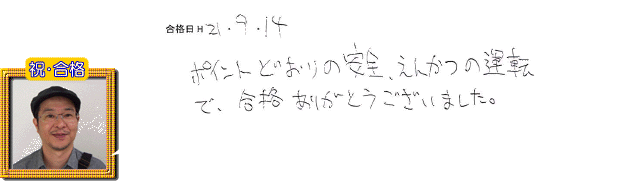 合格日 H 21.9.14
祝・合格
ポイントどおりの安全、えんかつの運転
で、合格ありがとうございました。